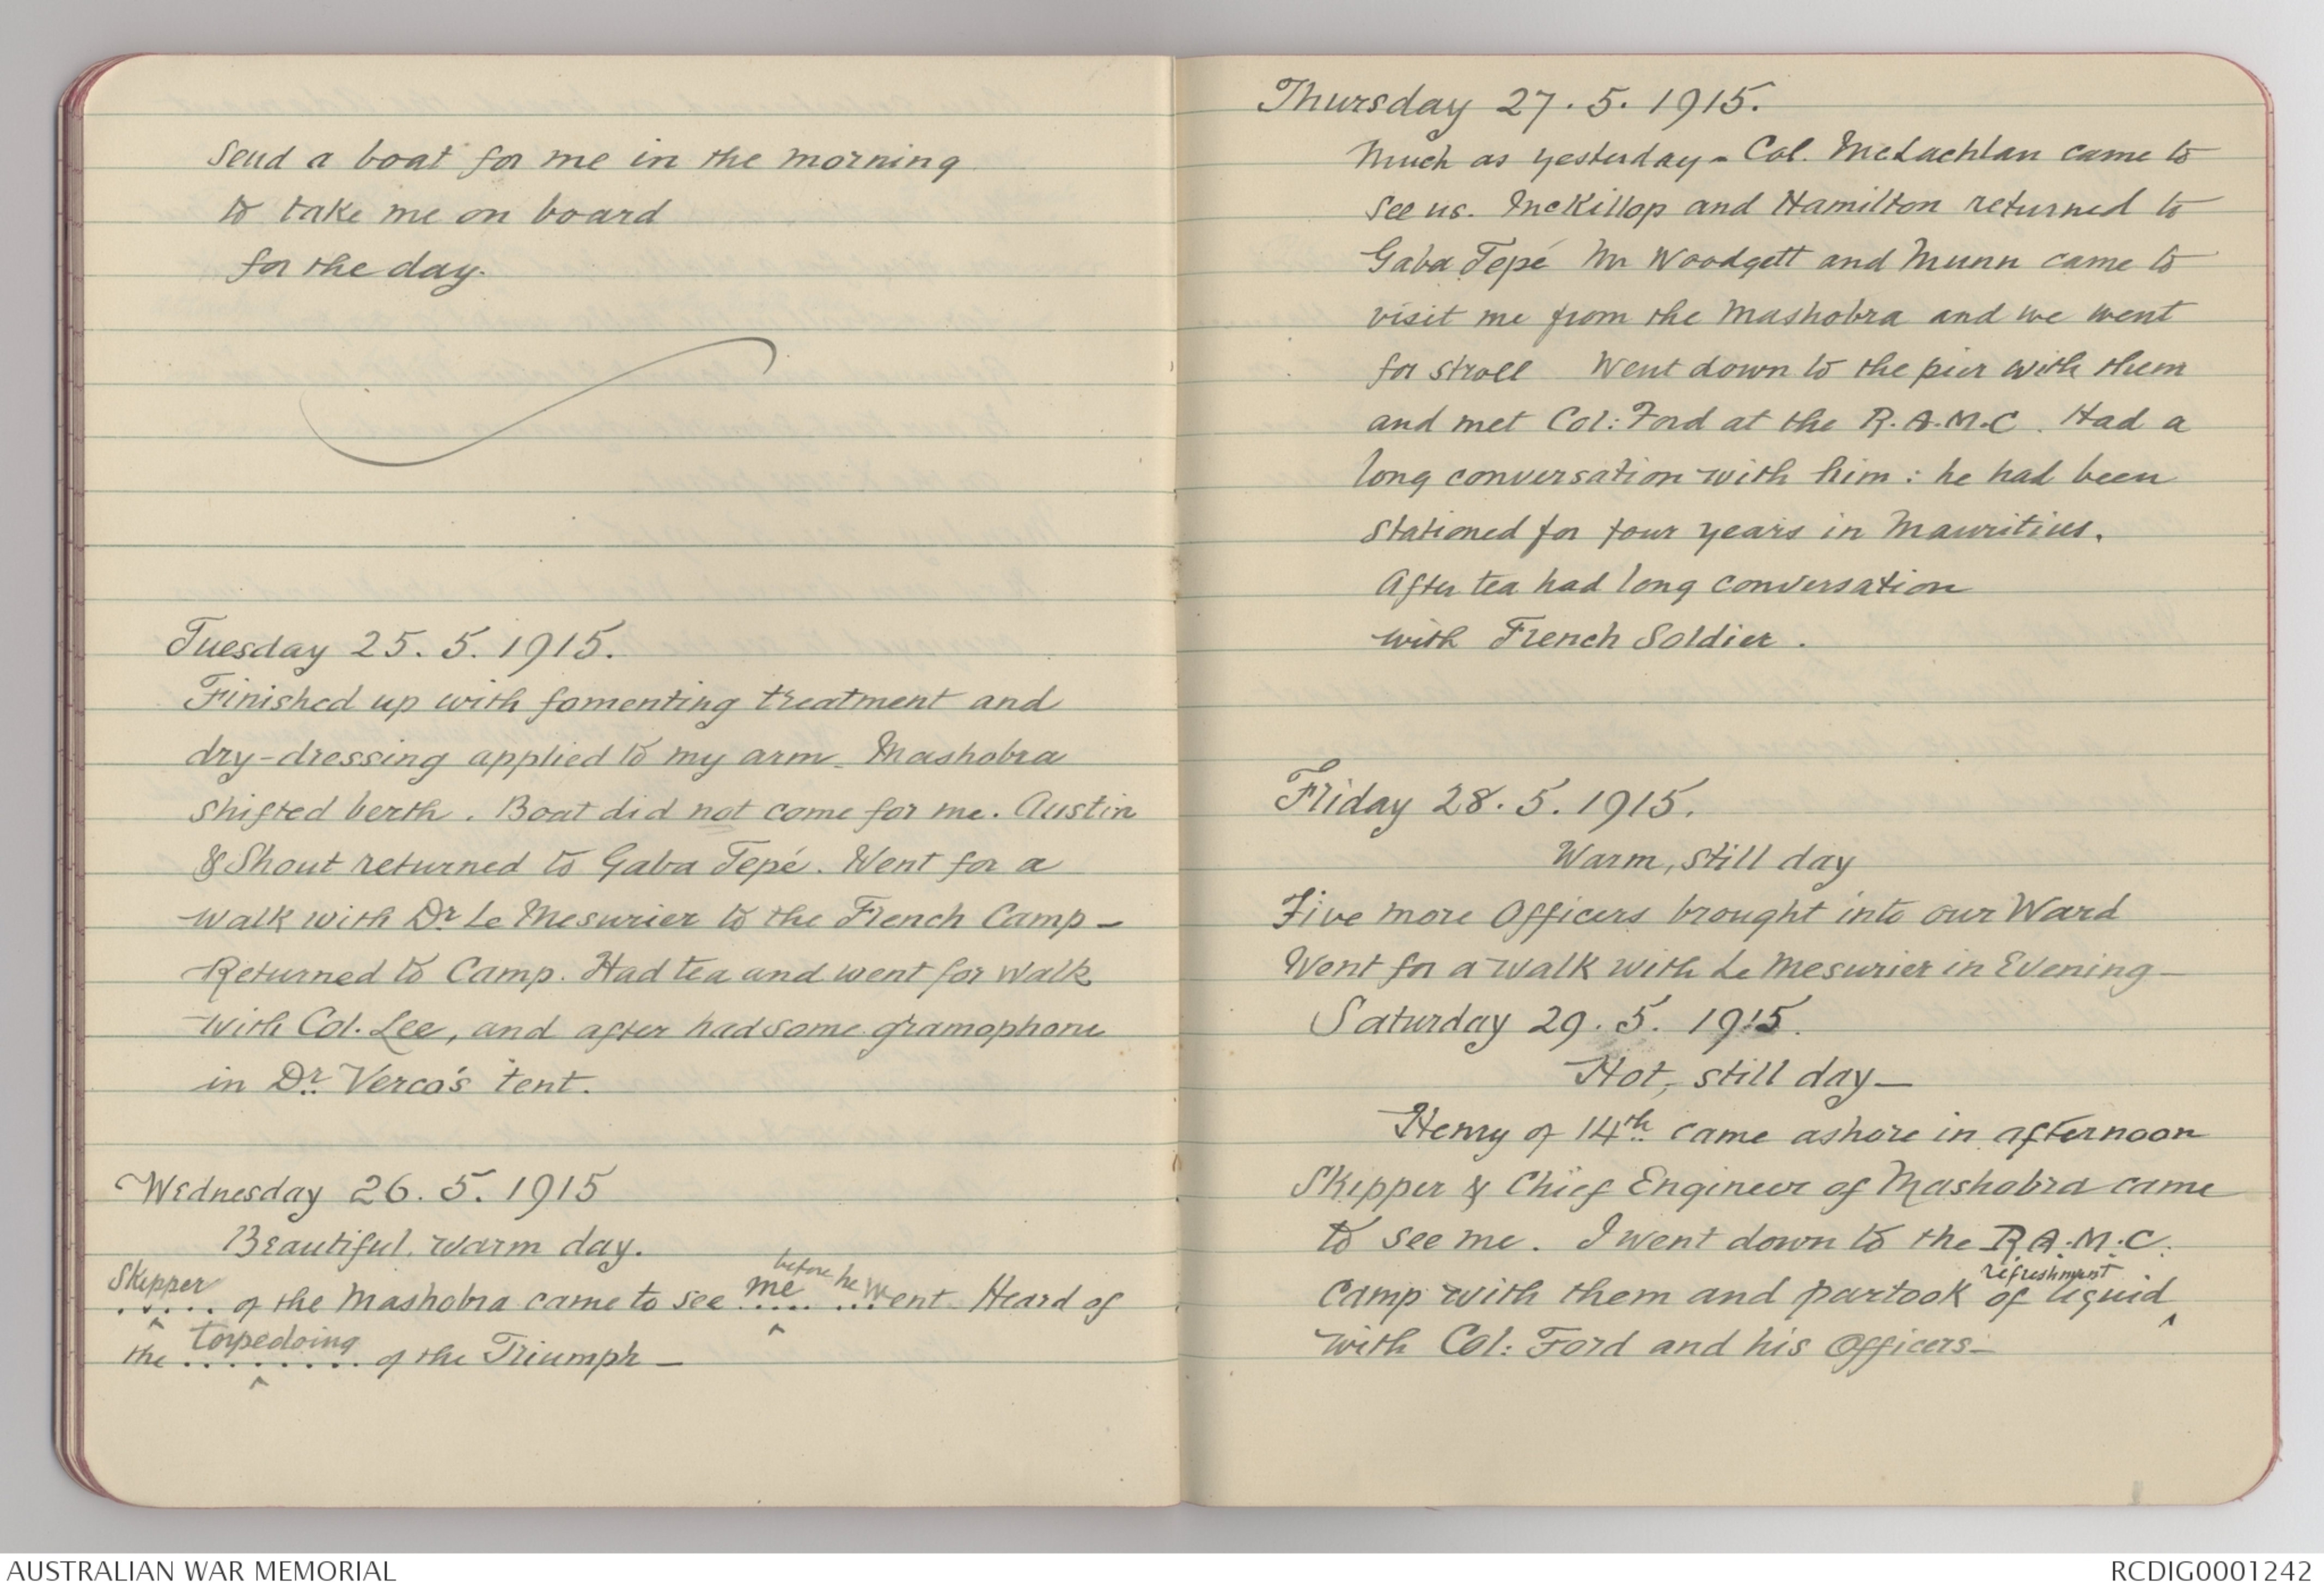 send a boat for me in the morning
to take me on board
for the day.
Tuesday 25. 5. 1915.
Finished up with fomenting treatment and
dry-dressing applied to my arm. Mashobra
shifted berth. Boat did not come for me. Austin
& Shout returned to Gaba Tepé. Went for a
walk with Dr Le Mesurier to the French Camp -
Returned to Camp. Had tea and went for walk
with Col. Lee, and after had some gramophone
in Dr. Verco's tent.
Wednesday 26. 5. 1915
Beautiful, warm day.
Skipper of the Mashobra came to see me before he went Heard of
the torpedoing of the Triumph -
Thursday 27. 5. 1915.
Much as yesterday - Col. McLachlan came to
see us. McKillop and Hamilton returned to
Gaba Tepé Mr Woodgett and Munn came to
visit me from the Mashobra and we went
for stroll Went down to the pier with them
and met Col: Ford at the R.A.M.C. Had a
long conversation with him: he had been
stationed for four years in Mauritius.
After tea had long conversation
with French Soldier.
Friday 28. 5. 1915.
Warm, still day
Five more Officers brought into our Ward
Went for a walk with Le Mesurier in Evening -
Saturday 29. 5. 1915.
Hot, still day -
Henry of 14th came ashore in afternoon
Skipper & Chief Engineer of Mashobra came
to see me. I went down to the R.A.M.C.
Camp with them and partook of liquid refreshment
with Col: Ford and his Officers -
AUSTRALIAN WAR MEMORIAL
RCDIG0001242